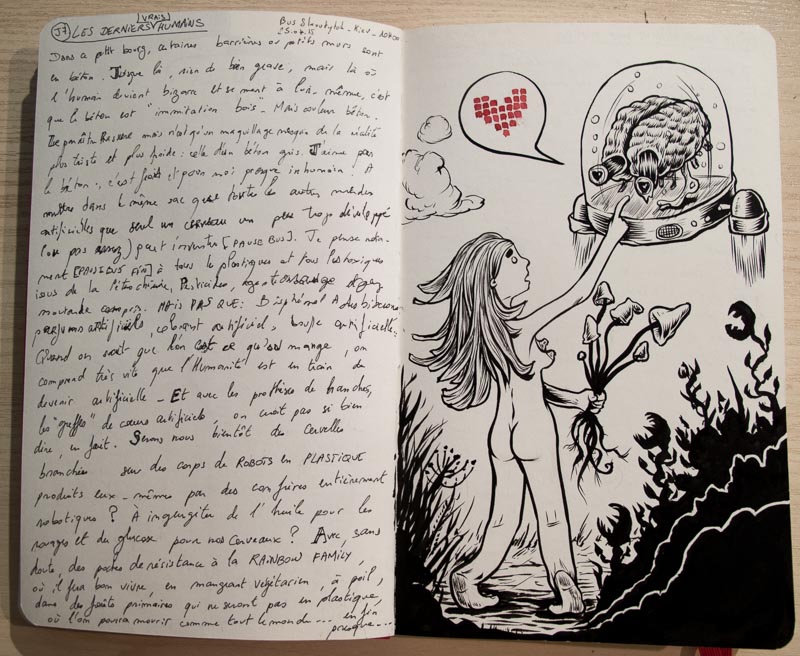 J7 LES DERNIERS [VRAIS] HUMAINS
Bus Slavutytch - Kiev - 10h00
25.04.15
Dans ce ptit bourg, certaines barrières ou petits murs sont
en béton. Jusque là, rien de bien grave, mais là où
l'humain devient bizarre et se ment à lui même, c'est
que le béton est "immitation bois". Mais couleur béton.
mais n'est qu'un maquillage mesquin de la réalité
plus triste et plus froide : celle d'un béton gris. J'aime pas
le béton, c'est froid et pour moi presque inhumain ! A
mettre dans le même sac que toutes les autres merdes
artificielles que seul un cerveau un peu trop développé
(ou pas assez) peut inventer [PAUSE BUS]. Je pense notam-
ment [PAUSE BUS FIN] à tous les plastiques et tous les toxiques
issus de la Pétrochimie, Pesticides,
moutarde compris. MAIS PAS QUE : Bisphénol A des biberons,
parfums artificiels, colorant artificiel, bouffe artificielle.
Quand on sait que l'on est ce qu'on mange, on
comprend très vite que l'Humanité est en train de
devenir artificielle - Et avec les prothèses de hanches,
les "greffes" de cœurs artificiels, on croit pas si bien
dire, en fait. Serons nous bientôt des Cervelles
branchées sur des corps de ROBOTS en PLASTIQUE
produits eux-mêmes par des confrères entièrement
robotiques ? À ingurgiter de l'huile pour les
rouages et du glucose pour nos cerveaux ? Avec, sans
doute, des poches de résistance à la RAINBOW FAMILY,
où il fera bon vivre, en mangeant végétarien, à poil,
dans des forêts primaires qui ne seront pas en plastique,
où l'on pourra mourir comme tout le monde... enfin
presque...